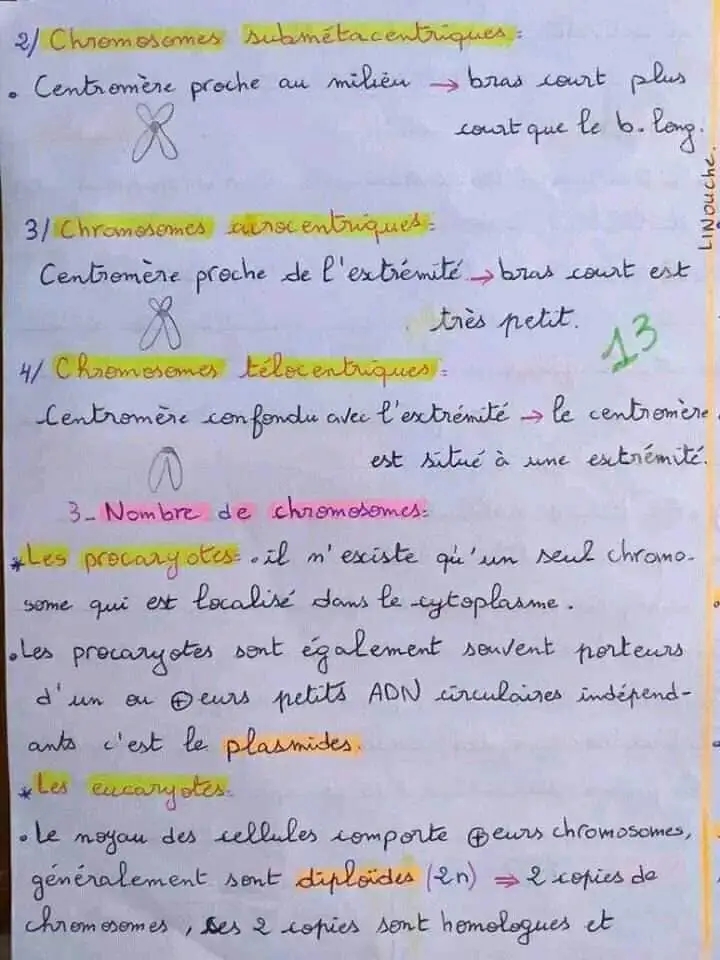 2/ Chromosomes submétacentriques:
• Centromère proche au milieu → bras court plus
court que le b. long.
LiNouche.
3/ Chromosomes acrocentriques:
Centromère proche de l'extrémité → bras court est
très petit.
13
4/ Chromosomes télocentriques:
Centromère confondu avec l'extrémité → le centromère
est situé à une extrémité.
3_ Nombre de chromosomes:
* Les procaryotes: • il n'existe qu'un seul chromo-
some qui est localisé dans le cytoplasme.
• Les procaryotes sont également souvent porteurs
d'un ou ⊕eurs petits ADN circulaires indépend-
ants c'est le plasmides.
* Les eucaryotes:
• Le noyau des cellules comporte ⊕eurs chromosomes,
généralement sont diploïdes (2n) ⇒ 2 copies de
chromosomes, ses 2 copies sont homologues et